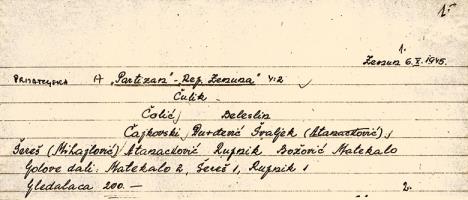 1.
Zemun 6.X.1945.
PRIJATELJSKA A "Partizan" - Rep. Zemuna" 4:2
Čulik
Čolić, Beleslin
Čajkovski, Đurđević Švaljek (Atanacković),
Šereš (Mihajlović) Atanacković Rupnik Božović Matekalo
Golove dali: Matekalo 2, Šereš 1, Rupnik 1
Gledalaca 200.—
2.